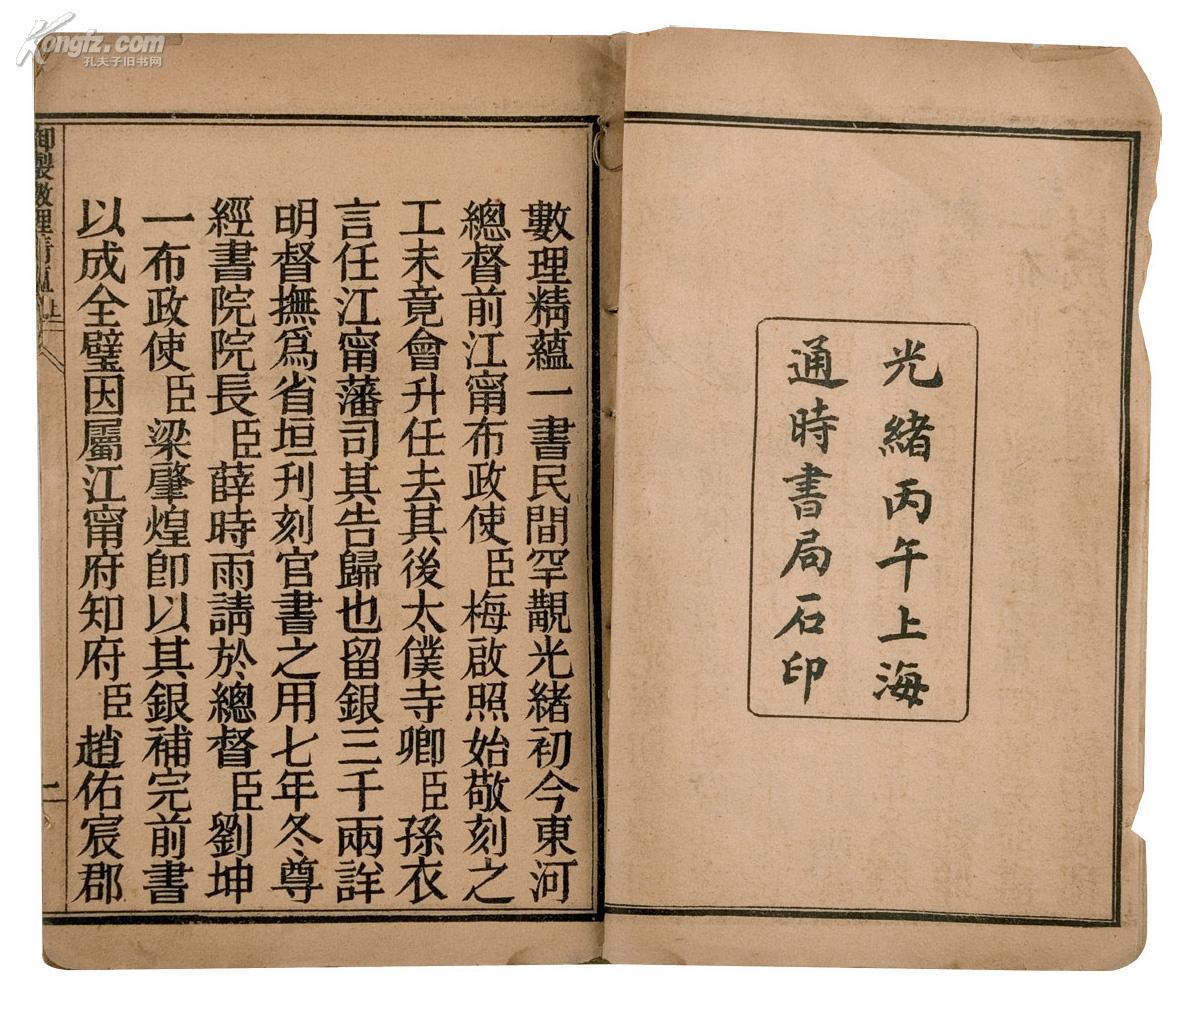 Kongfz.com
孔夫子旧书网
光緒丙午上海
通時書局石印
數理精蘊一書民間罕觀光緒初今東河
總督前江甯布政使臣梅啟照始敬刻之
工未竟會升任去其後太僕寺卿臣孫衣
言任江甯藩司其告歸也留銀三千兩詳
明督撫爲省垣刊刻官書之用七年冬尊
經書院院長臣薛時雨請於總督臣劉坤
一布政使臣梁肇煌卽以其銀補完前書
以成全璧因屬江甯府知府臣趙佑宸郡
御製數理精蘊
上